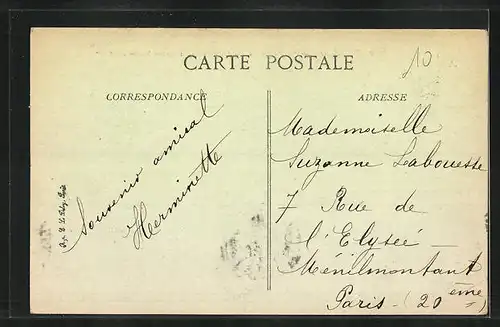 10
CARTE POSTALE
CORRESPONDANCE
ADRESSE
Souvenir amical
Herminette
Mademoiselle
Suzanne Labouesse
7 Rue de
l'Elysée —
Ménilmontant
Paris - (20ème)